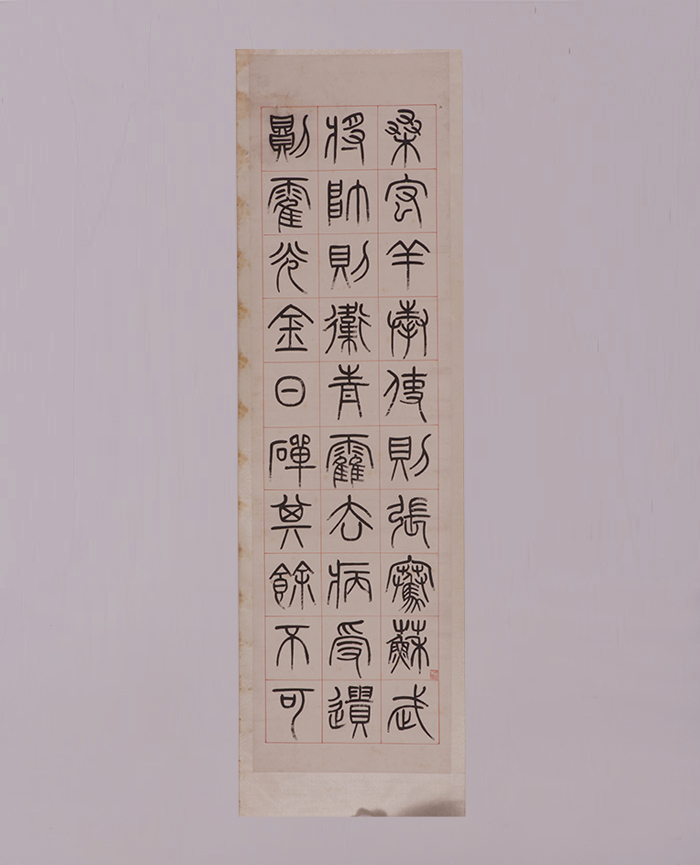 桑宏羊奉使則張騫蘇武
將帥則衛青霍去病受遺
則霍光金日磾其餘不可